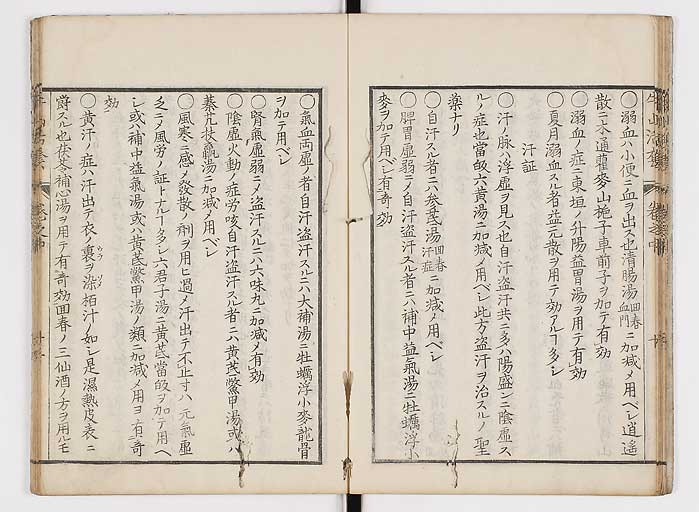 〇溺血ハ小便ニ血ヲ出ス也清腸湯回春血門ニ加減メ用ベシ逍遥
散ニ木通瞿麥山梔子車前子ヲ加テ有効
〇溺血ノ症ニ東垣ノ升陽益胃湯ヲ用テ有効
〇夏月溺血スル者益元散ヲ用テ効アルヿ多シ
汗証
〇汗ノ脉ハ浮虚ヲ見ス也自汗盗汗共ニ多ハ陽盛ンニ陰虚ス
ルノ症也當皈六黄湯ニ加減メ用ベシ此方盗汗ヲ治スルノ聖
藥ナリ
〇自汗スル者ニハ參芪湯回春汗症ニ加減メ用ベシ
〇脾胃虚弱ニメ自汗盗汗スル者ニハ補中益氣湯ニ牡蠣浮小
麥ヲ加テ用ベシ有奇効
〇氣血両虚ノ者自汗盗汗スルニハ大補湯ニ牡蠣浮小麥龍骨
ヲ加テ用ベシ
〇腎氣虚弱ニメ盗汗スルニハ六味丸ニ加減メ有効
〇陰虚火動ノ症労咳自汗盗汗スル者ニハ黄芪鱉甲湯或ハ
秦艽扶羸湯ニ加減メ用ベシ
〇風寒ニ感メ發散ノ剤ヲ用ヒ過メ汗出テ不止寸ハ元氣虚
之ニメ風労ノ証トナルヿ多シ六君子湯ニ黄芪當皈ヲ加テ用ベ
シ或ハ補中益氣湯或ハ黄芪鱉甲湯ノ類ニ加減メ用ヨ有奇
効
〇黄汗ノ症ハ汗出テ衣ノ裏ヲ染栢汁ノ如シ是濕熱皮表ニ
爵スル也茯苓補心湯ヲ用テ有奇効回春ノ三仙酒ノ方ヲ用ルモ